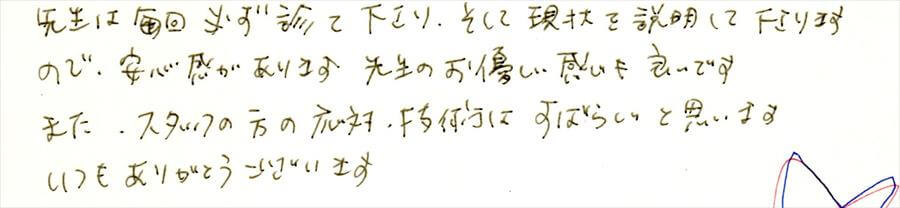 先生は毎回必ず診て下さり、そして現状を説明して下さります
ので、安心感があります 先生のお優しい感じも良いです
また、スタッフの方の応対、技術は すばらしいと思います
いつもありがとうございます